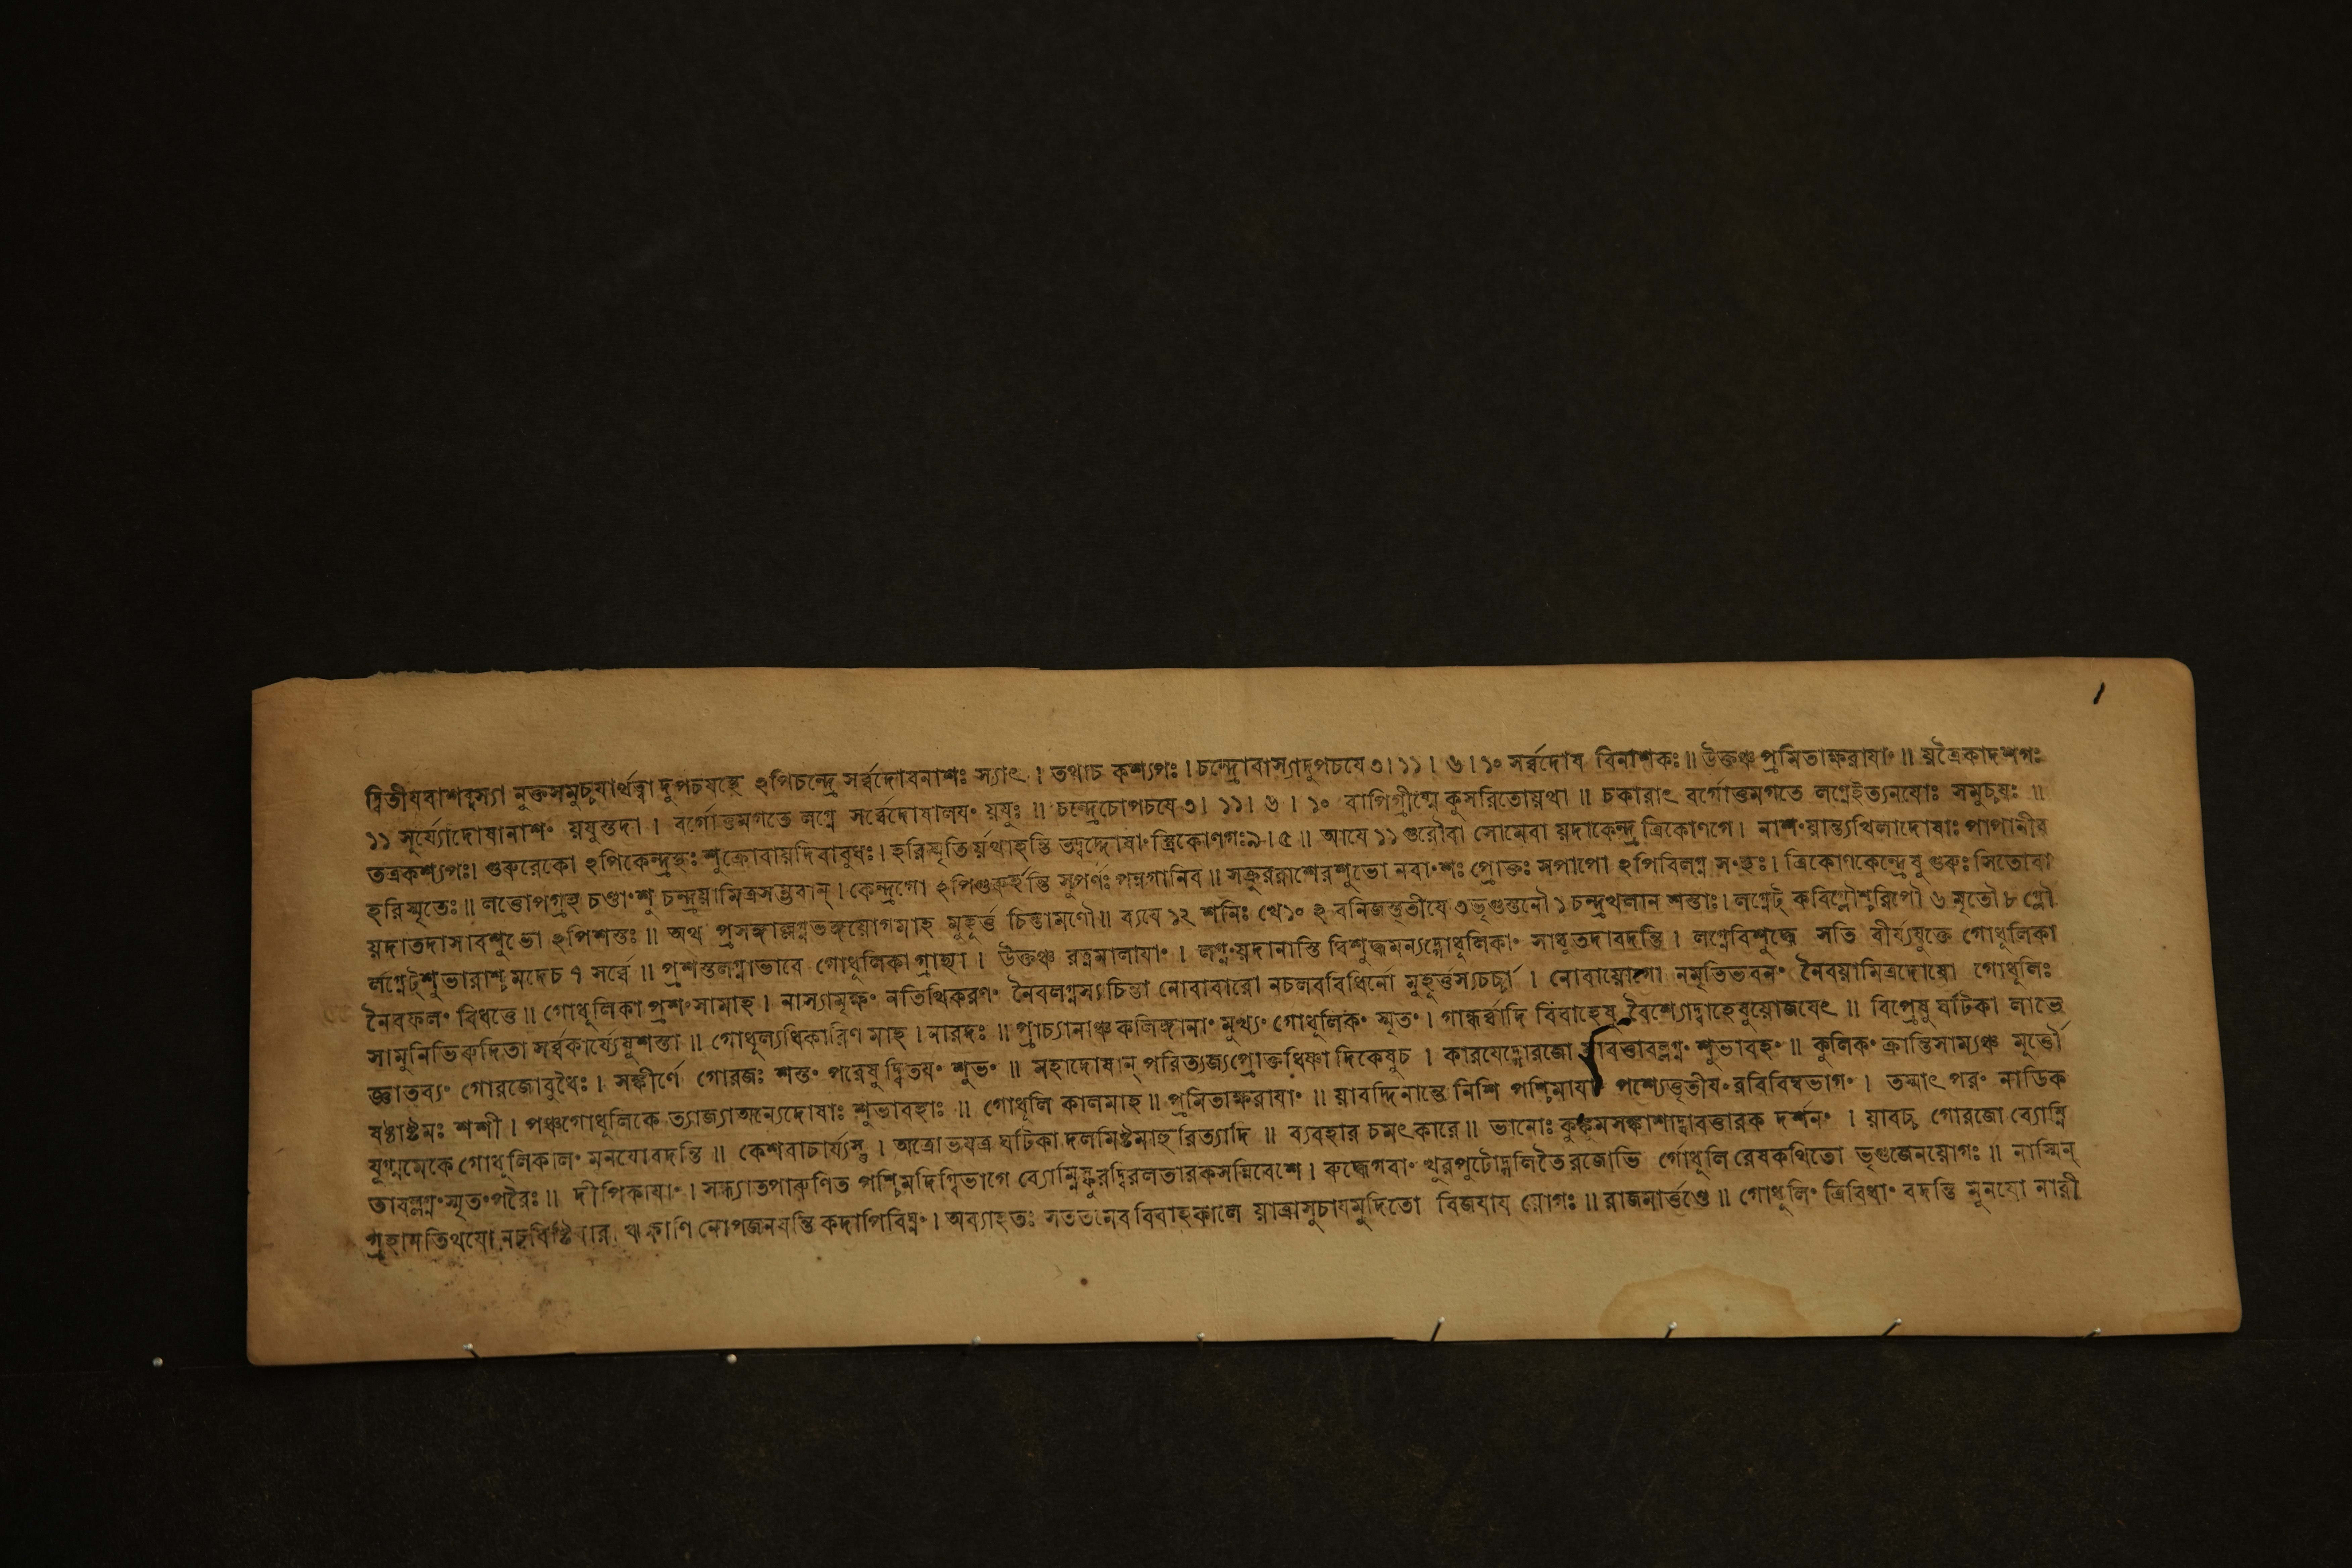 ১
দ্বিতীযবাশব্দস্যা নুক্তসমুচ্চযার্থত্বা দুপচযস্থে ঽপিচন্দ্রে সর্ব্বদোষনাশঃ স্যাৎ । তথাচ কশ্যপঃ । চন্দ্রোবাস্যাদুপচযে ৩। ১১। ৬। ১০ সর্ব্বদোষ বিনাশকঃ ॥ উক্তঞ্চ প্রমিতাক্ষরাযাং ॥ য়ত্রৈকাদশগঃ
১১ সূর্য্যোদোষানাশং য়যুস্তদা । বর্গোত্তমগতে লগ্নে সর্ব্বেদোষালযং য়যুঃ ॥ চন্দ্রেচোপচযে ৩। ১১। ৬ । ১০ বাপিগ্রীষ্মে কুসরিতোয়থা ॥ চকারাৎ বর্গোত্তমগতে লগ্নেইত্যনযোঃ সমুচ্চযঃ ॥
তত্রকশ্যপঃ। গুরুরেকো ঽপিকেন্দ্রস্থঃ শুক্রোবায়দিবাবুধঃ। হরিস্মৃতির্য়থাহন্তি তদ্বদ্দোষাংস্ত্রিকোণগঃ৯।৫ ॥ আযে ১১ গুরৌবা সোমেবা য়দাকেন্দ্র ত্রিকোণগে। নাশংয়ান্ত্যখিলাদোষাঃ পাপানীব
হরিস্মৃতেঃ॥ লত্তোপগ্রহ চণ্ডাংশু চন্দ্রয়ামিত্রসম্ভবান্। কেন্দ্রগো ঽপিগুরুর্হন্তি সুপর্ণঃ পন্নগানিব ॥ সক্রূররাশেরশুভো নবাংশঃ প্রোক্তঃ সপাপো ঽপিবিলগ্ন সংস্থঃ। ত্রিকোণকেন্দ্রেষু গুরুঃ সিতোবা
য়দাতদাসাবশুভো ঽপিশস্তঃ ॥ অথ প্রসঙ্গাল্লগ্নভঙ্গয়োগমাহ মুহূর্ত্ত চিন্তামণৌ॥ ব্যযে ১২ শনিঃ খে১০ ঽ বনিজস্তৃতীযে ৩ভৃগুস্তনৌ ১ চন্দ্রখলান শস্তাঃ। লগ্নেট্ কবিগ্লৌশ্চরিপৌ ৬ মৃতৌ ৮ গ্লৌ
র্লগ্নেট্শুভারাশ্চ মদেচ ৭ সর্ব্বে ॥ প্রশস্তলগ্নাভাবে গোধূলিকা গ্রাহ্যা । উক্তঞ্চ রত্নমালাযাং । লগ্নংয়দানাস্তি বিশুদ্ধমন্যদ্গোধূলিকাং সাধুতদাবদন্তি । লগ্নেবিশুদ্ধে সতি বীর্য্যযুক্তে গোধূলিকা
নৈবফলং বিধত্তে ॥ গোধূলিকা প্রশংসামাহ । নাস্যামৃক্ষং নতিথিকরণং নৈবলগ্নস্যচিন্তা নোবাবারো নচলববিধির্নো মুহূর্ত্তস্যচর্চ্চা । নোবায়োগো নমৃতিভবনং নৈবয়ামিত্রদোষো গোধূলিঃ
সামুনিভিরুদিতা সর্ব্বকার্য্যেষুশস্তা ॥ গোধূল্যধিকারিণ মাহ । নারদঃ ॥ প্রাচ্যানাঞ্চকলিঙ্গানাং মুখ্যং গোধূলিকং স্মৃতং । গান্ধর্ব্বাদি বিবাহেষু বৈশ্যোদ্বাহেষুয়োজযেৎ ॥ বিপ্রেষু ঘটিকা লাভে
জ্ঞাতব্যং গোরজোবুধৈঃ। সঙ্কীর্ণে গোরজঃ শস্তং পরেষু দ্বিতযং শুভং ॥ মহাদোষান্ পরিত্যজ্যপ্রোক্তধিষ্ণা দিকেষুচ । কারযেদ্গোরজো য়াবত্তাবল্লগ্নং শুভাবহং ॥ কুলিকং ক্রান্তিসাম্যঞ্চ মূর্ত্তৌ
ষষ্ঠাষ্টমঃ শশী । পঞ্চগোধূলিকে ত্যাজ্যাঅন্যেদোষাঃ শুভাবহাঃ ॥ গোধূলি কালমাহ ॥ প্রমিতাক্ষরাযাং ॥ য়াবদ্দিনান্তে নিশি পশ্চিমাযাং পশ্যেত্তৃতীযং রবিবিম্বভাগং । তস্মাৎ পরং নাডিক
যুগ্মমেকে গোধূলিকালং মনযোবদন্তি ॥ কেশবাচার্য্যস্তু । অত্রোভযত্র ঘটিকা দলমিষ্টমাহুরিত্যাদি ॥ ব্যবহার চমৎকারে ॥ ভানোঃ কুঙ্কুমসঙ্কাশাদ্যাবত্তারক দর্শনং । য়াবচ্চ গোরজো ব্যোম্নি
তাবল্লগ্নংস্মৃতংপরৈঃ॥ দীপিকাযাং। সন্ধ্যাতপারুণিত পশ্চিমদিগ্বিভাগে ব্যোম্নিস্ফুরদ্বিরলতারকসন্নিবেশে। রুদ্ধেগবাং খুরপুটোদ্দলিতৈ রজোভি র্গোধূলি রেষকথিতো ভৃগুজেনয়োগঃ ॥ নাস্মিন্
গ্রহানতিথযো নচবিষ্টিবারা ঋক্ষাণি নোপজনযন্তি কদাপিবিঘ্নং। অব্যাহতঃ সততমেব বিবাহকালে য়াত্রাসুচাযমুদিতো বিজযায য়োগঃ ॥ রাজমার্ত্তণ্ডে ॥ গোধূলিং ত্রিবিধাং বদন্তি মুনযো নারী